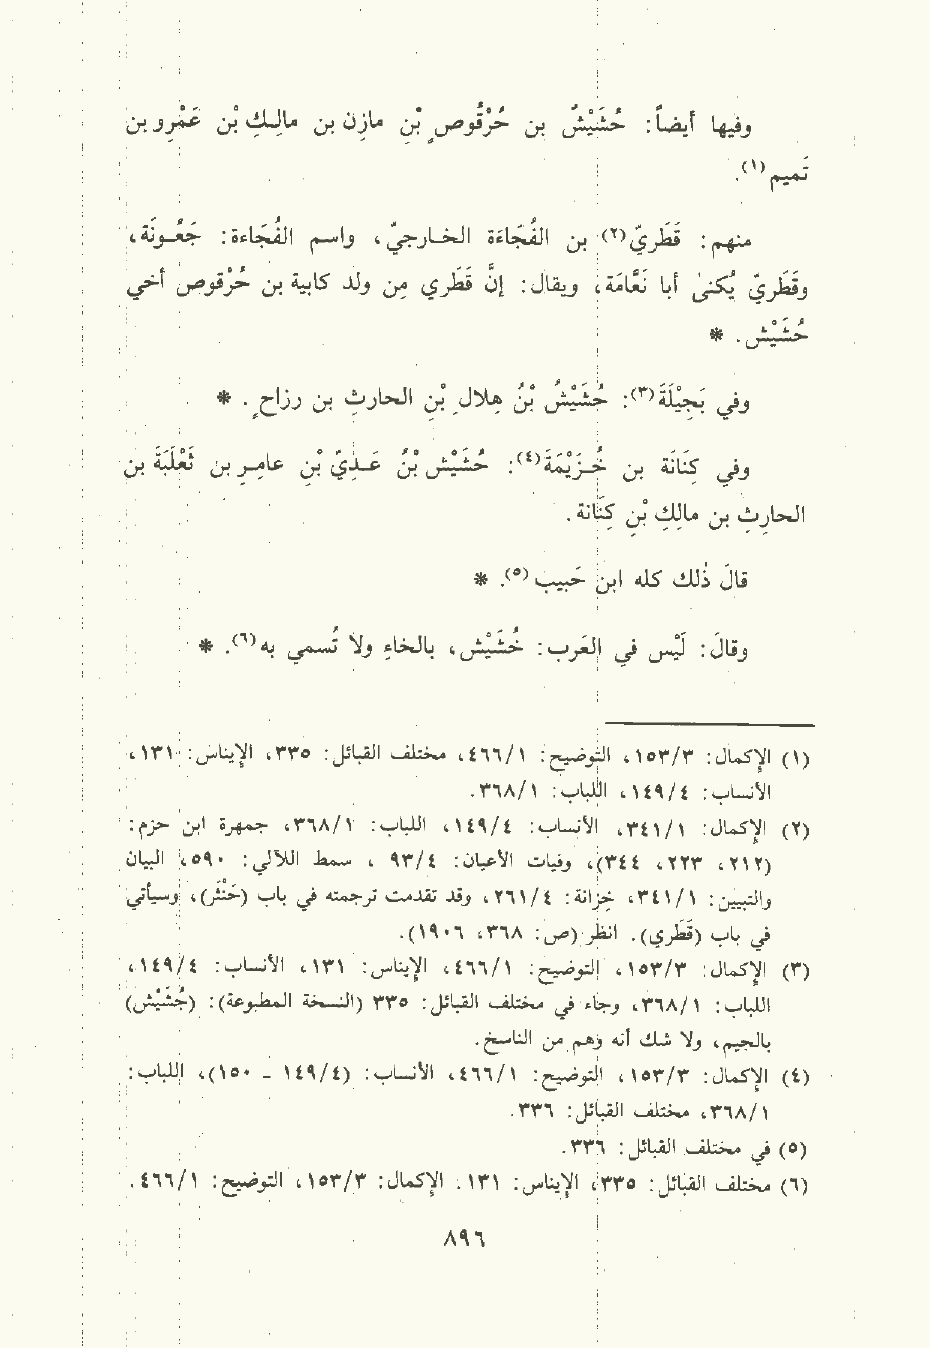 وفيها أيضاً: حُشَيْشٌ بن حُرْقُوصِ بْنِ مازِن بن مالِكِ بْن عَمْرِو بن
تَميم(١).
منهم: قَطَريّ(٢) بن الفُجَاءَة الخارجيّ، واسم الفُجَاءة: جَعُونَة،
وقَطَريّ يُكنىٰ أبا نَعَّامَة، ويقال: إنَّ قَطَري مِن ولد كابية بن حُرْقوص أخي
حُشَيْش. *
وفي بَجِيْلَةَ(٣): حُشَيْشُ بْنُ هِلالِ بْنِ الحارثِ بن رزاحٍ. *
وفي كِنَانَة بن خُزَيْمَةَ(٤): حُشَيْش بْنُ عَدِيّ بْنِ عامِرِ بن ثَعْلَبَةَ بن
الحارِثِ بن مالِكِ بْنِ كِنَانة.
قالَ ذٰلك كله ابن حَبيب(٥). *
وقالَ: لَيْس في العَرب: خُشَيْش، بالخاءِ ولا تُسمي به(٦). *
(١) الإكمال: ١٥٣/٣، التوضيح: ٤٦٦/١، مختلف القبائل: ٣٣٥، الإيناس: ١٣١،
الأنساب: ١٤٩/٤، اللباب: ٣٦٨/١.
(٢) الإكمال: ٣٤١/١، الأنساب: ١٤٩/٤، اللباب: ٣٦٨/١، جمهرة ابن حزم:
(٢١٢، ٢٢٣، ٣٤٤)، وفيات الأعيان: ٩٣/٤ ، سمط اللآلي: ٥٩٠، البيان
والتبيين: ٣٤١/١، خزانة: ٢٦١/٤، وقد تقدمت ترجمته في باب (حَنْثَر)، وسيأتي
في باب (قَطَري). انظر (ص: ٣٦٨، ١٩٠٦).
(٣) الإكمال: ١٥٣/٣، التوضيح: ٤٦٦/١، الإيناس: ١٣١، الأنساب: ١٤٩/٤،
اللباب: ٣٦٨/١، وجاء في مختلف القبائل: ٣٣٥ (النسخة المطبوعة): (جُشَيْش)
بالجيم، ولا شك أنه وهم من الناسخ.
(٤) الإكمال: ١٥٣/٣، التوضيح: ٤٦٦/١، الأنساب: (١٤٩/٤ - ١٥٠)، اللباب:
٣٦٨/١، مختلف القبائل: ٣٣٦.
(٥) في مختلف القبائل: ٣٣٦.
(٦) مختلف القبائل: ٣٣٥، الإيناس: ١٣١. الإكمال: ١٥٣/٣، التوضيح: ٤٦٦/١.
٨٩٦